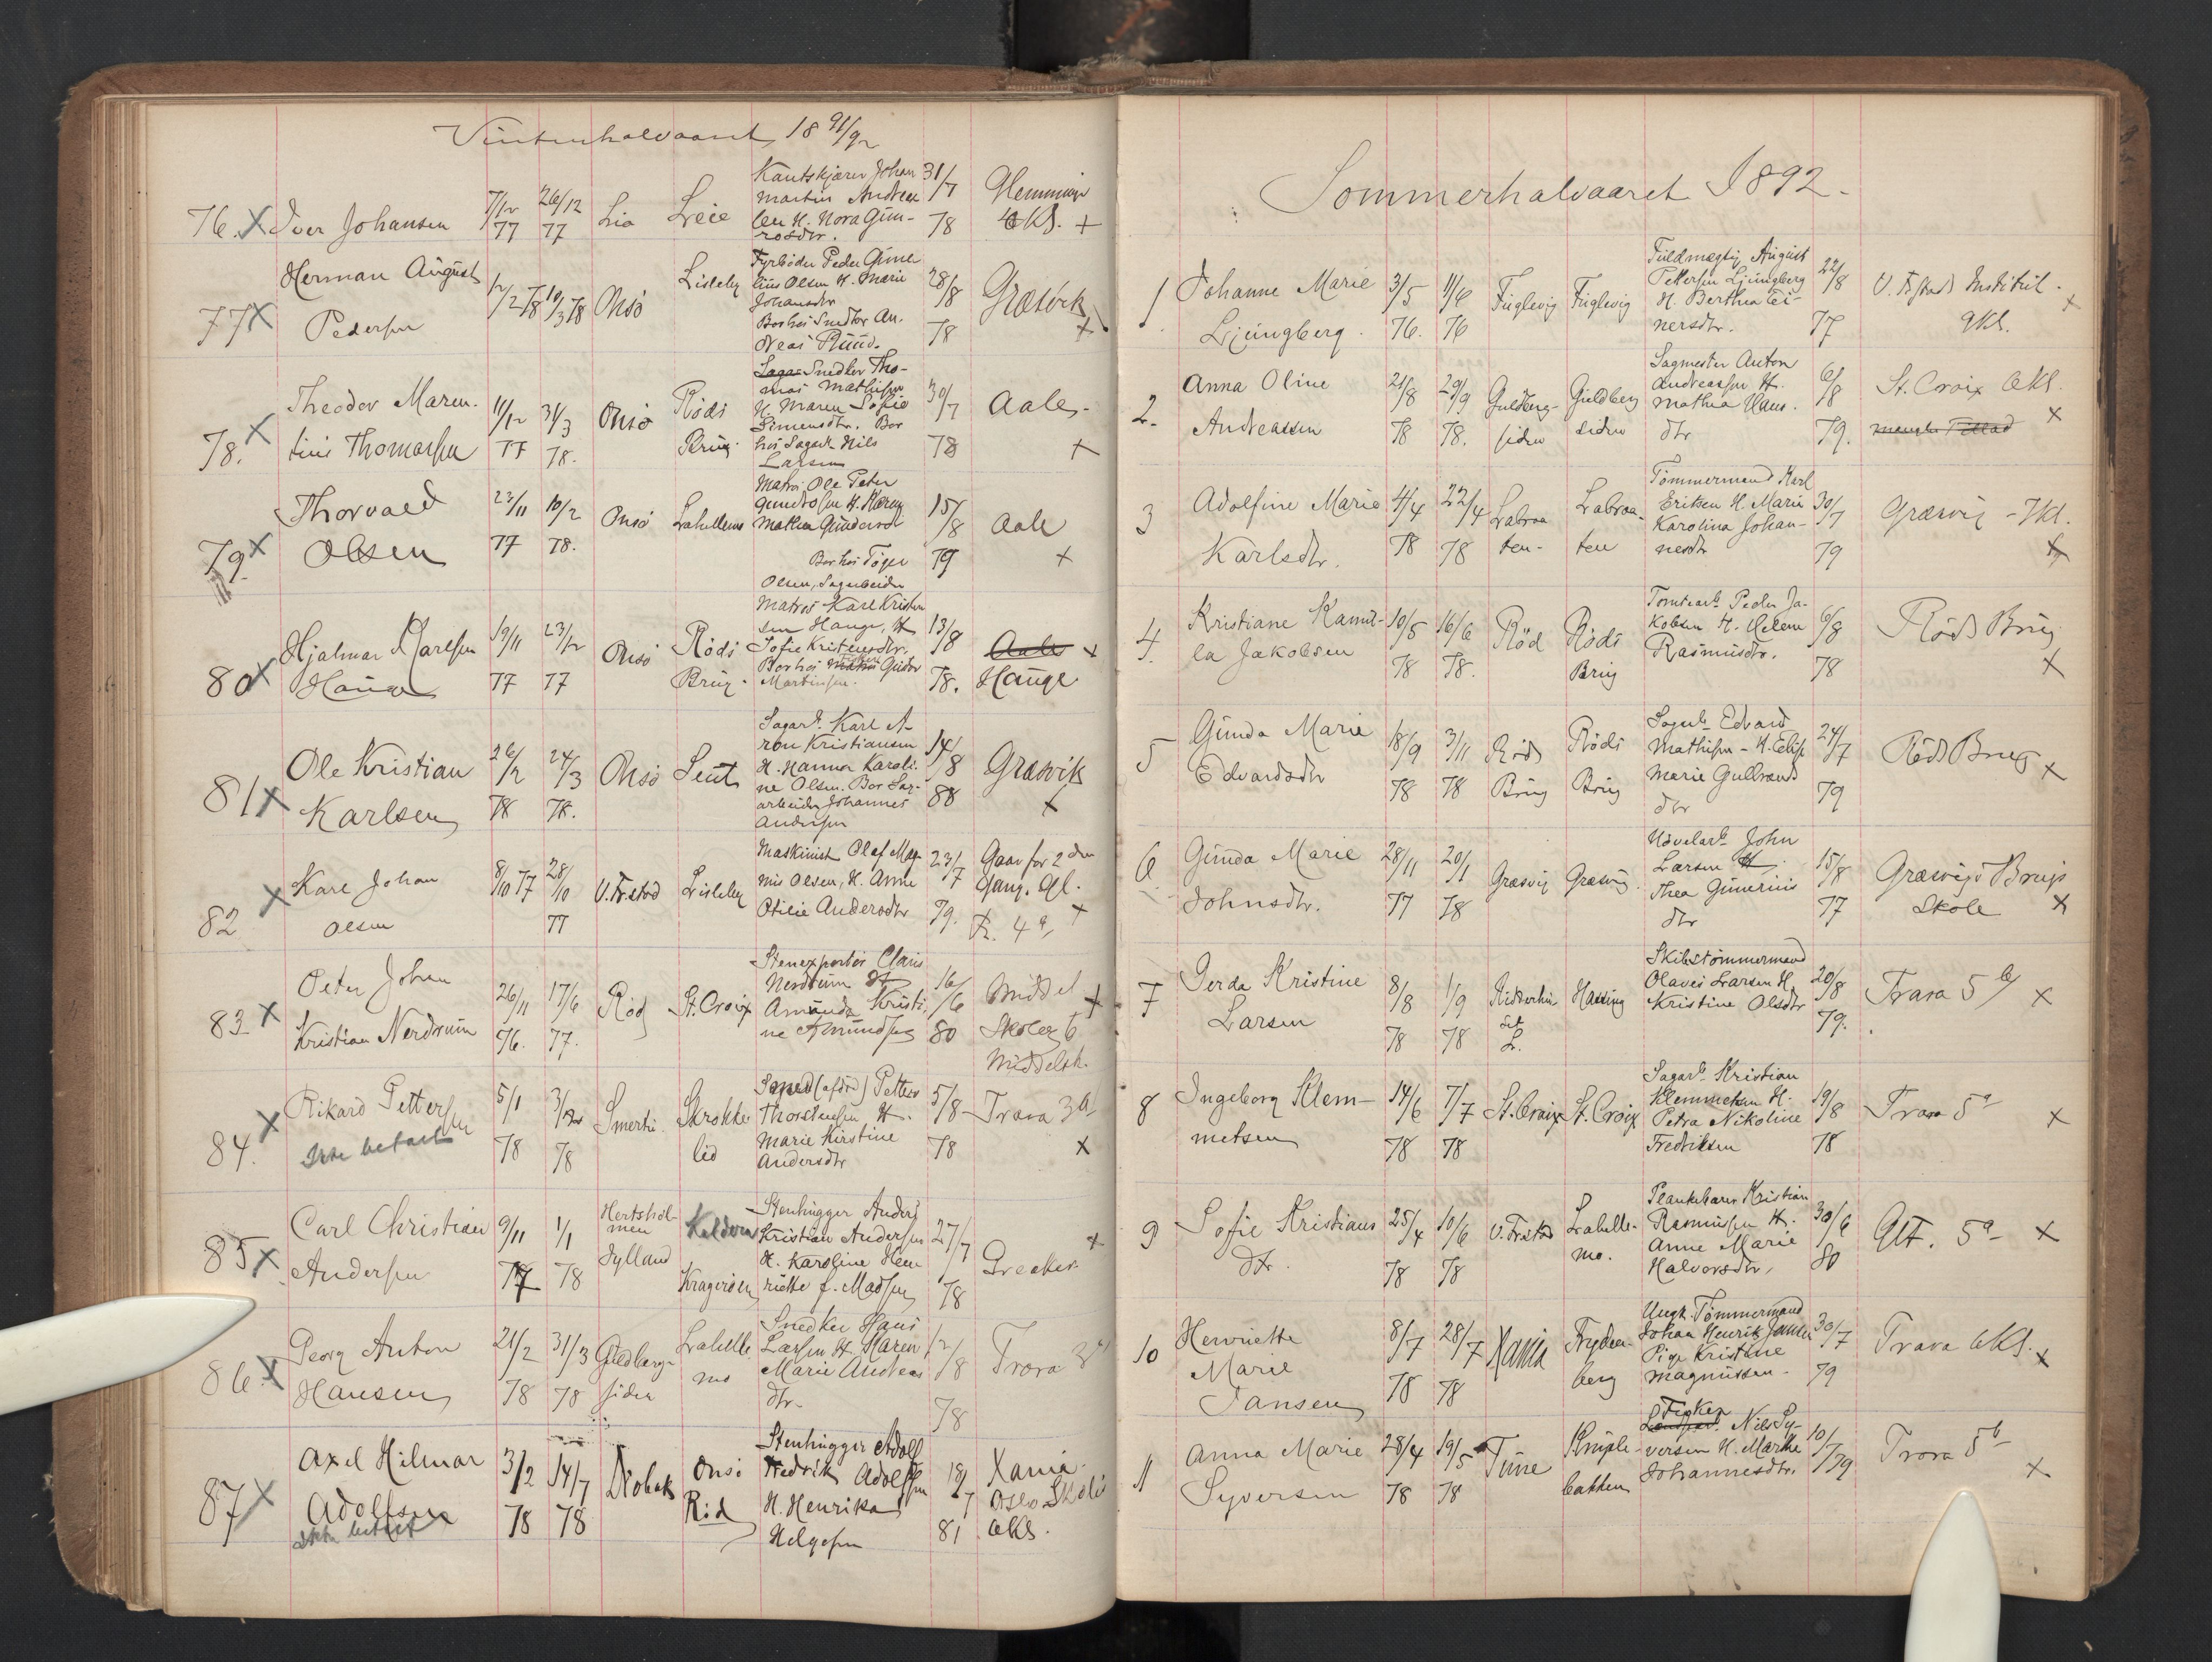 Vinterhalvaaret 18 91/92
76. X Iver Johansen 7/12 77 26/12 77 Lia Leie
Kantskjærer Johan
Martin Andrea
sen H. Nora Gun-
rosdtr.
31/7 78
Glemminge
6 Kl. +
77 X Herman August
Pedersen
1/2 78 10/3 78 Onsö Lisleby
Fyrböder Peder Gune
lius Olsen H. Marie
Johansdtr
Bor hos Snedker An.
dreas Ruud.
28/8 78
Græsvik
X
78. X Theodor Maren-
tius Thomassen
11/12 77 31/3 78. Onsö Röds
Brug.
Saga- Snedker Tho-
mas Mathisen
H. Maren Sofie
Simensdtr. Bor
hos Sagarb. Nils
Larsen
30/7 78
Aale.
X
79. X Thorvald
Olsen
23/11 77 10/2 78. Onsö Lahellemo
Matros Ole Peter
Gundrosen H. Karen
Mathea Gundersdr
Bor hos Töger
Olsen, Sagarbeider
15/8 79
Aale
X
80 X Hjalmar Karlsen
Hauge
19/11 77 23/12 77 Onsö Röds
Brug.
Matros Karl Kristen
sen Hauge, H
Sofie Kristensdtr.
Bor hos Gustav
Martinsen.
13/8 78.
Aale X
Hauge
81 X Ole Kristian
Karlsen
26/2 78 24/3 78. Onsö Seut
Sagarb. Karl A-
ron Kristiansen
H. Hanna Karoli-
ne Olsen. Bor Sag-
arbeider Johannes
Andersen
14/8 88
Græsvik
X
82 X Karl Johan
Olsen
8/10 77 28/10 77 V. Fr.stad Lisleby
Maskinist Olaf Mag-
nus Olsen, H. Anne
Otilie Andersdtr
23/7 79.
Gaar for 2den
Gang. Gl.
Fr. 4a, +
83 X Peter Johan
Kristian Nerdrum
26/11 76. 17/6 77. Röd St. Croix
Stenexportör Claus
Nerdrum H
Amanda Kristi-
ne Amundsen
16/6 80
Middel X
Skolen 6
Middelsk.
84. X Rikard Pettersen
Ikke betalt
5/1 78 3/2 78 Smerte. Skrokke
lid
Smed (afdöd) Petter
Thorstensen H.
Marie Kirstine
Andersdtr
5/8 78
Trara 3a
X
85 X Carl Christian
Andersen
9/11 77 1/1 78 Hertshol-
men
Jylland
Kragerøen
Stenhugger Anders
Kristian Andersen
H. Karoline Hen
riette f. Madsen
27/7 78
Greaker X
86. X Georg Anton
Hansen
21/2 78 31/3 78 Guldberg-
siden
Lahelle
mo
Snedker Hans
Larsen H. Maren
Marie Andreas
dtr.
1/8 78
Trara 3a
87 X Axel Hilmar
Adolfsen
Ikke betalt
3/2 78 14/7 78 Dröbak Onsö
Röd
Stenhugger Adolf
Fredrik Adolfsen
H. Henrika
Helgesen
18/7 81
Xania.
Oslo Skole
6 Kl.
Sommerhalvaaret 1892.
1 Johanne Marie
Ljungberg.
3/5 76. 11/6 76 Fuglevig Fuglevig
Fuldmægtig August
Pettersen Ljungberg
H. Berthea Ei-
nersdtr.
22/8 77
V. Fr.stads Institut.
9 Kl. X
2. Anna Oline
Andreassen
21/8 78 29/9 78. Guldberg-
siden
Guldberg
siden
Sagmester Anton
Andreassen H.
Mathea Hans.
dtr
6/8 79.
St. Croix 6 Kl.
X
3 Adolfine Marie
Karlsdtr.
4/4 78 22/4 78 Labraa-
ten-
Labraa-
ten
Tömmermand Karl
Eriksen H. Marie
Karolina Johan-
nesdtr
30/7 79
Græsvig - 7 Kl.
X
4. Kristiane Kamil-
la Jakobsen
10/5 78 16/6 78. Röd Röds
Brug
Tomtearb. Peder Ja-
kobsen H. Helene
Rasmusdtr.
6/8 78
Röds Brug
X
5 Gunda Marie
Edvardsdtr
18/9 78 3/11 78 Röds
Brug
Röds
Brug
Sagarb. Edvard
Mathisen - H. Elise
Marie Gulbrands
dtr
24/7 79
Röds Brug X
6 Gunda Marie
Johnsdtr.
28/11 77 20/1 78 Græsvig Græsvig.
Hövlarb. John
Larsen H.
Thea Gunerius
dtr
15/8 77
Græsvigs Brugs
Skole X
7 Gerda Kristine
Larsen
8/8 78 1/9 78 Hassing
Skibstömmermand
Olaves Larsen H
Kristine Olsdtr
20/8 79.
Trara 5 b/ X
8 Ingeborg Klem-
metsen
14/6 78 7/7 78 St. Croix St. Croix
Sagarb. Kristian
Klemmetsen H.
Petra Nikoline
Fredriksen
19/8 78
Trara 5a X
9 Sofie Kristians
dtr.
25/4 78 10/6 78 V. Frstad Lahelle-
mo.
Plankebærer Kristian
Rasmussen H.
Anne Marie
Halvorsdtr.
30/6 80
Glf. 5a X
10 Henriette
Marie
Jansen
8/7 78 28/7 78 Xania Fryden-
berg
Ungk. Tömmermand
Johan Henrik Jansen
Pige Kristine
Magnussen.
30/7 79
Trara 6 Kl. X
11 Anna Marie
Syversen
28/4 78 19/5 78 Tune Kniple-
bakken
Fisker
Nils Sy-
versen H. Marthe
Johannesdtr.
10/7 79
Trara 5b
X